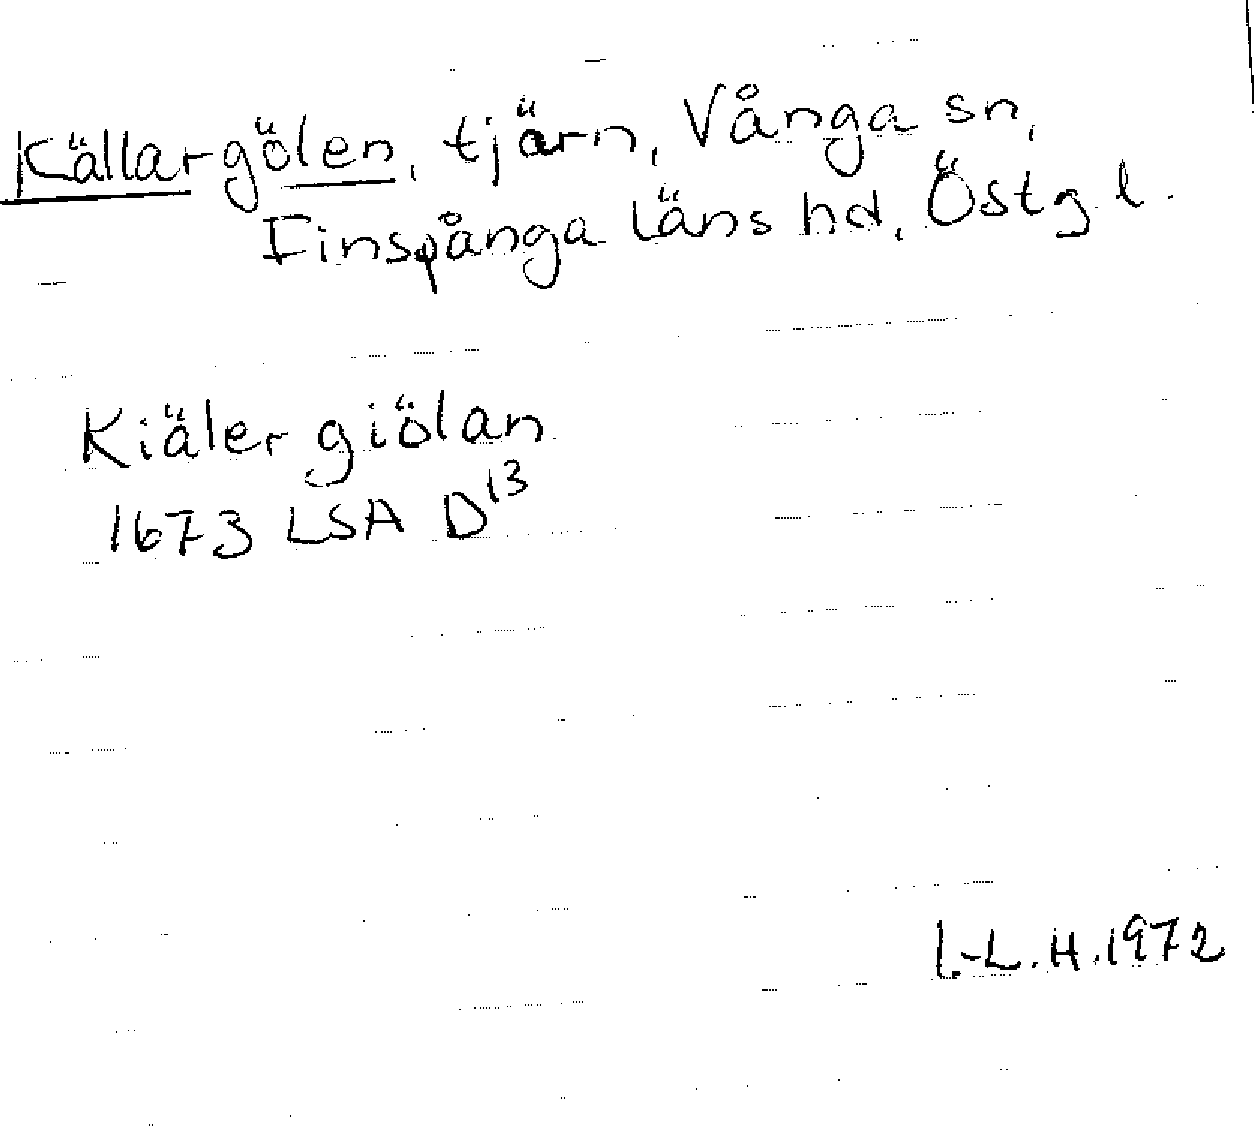 Källargölen, tjärn, Vånga sn,
Finspånga läns hd, Östg l.
Kiäler giölan
1673 LSA D13
I.-L.H.1972